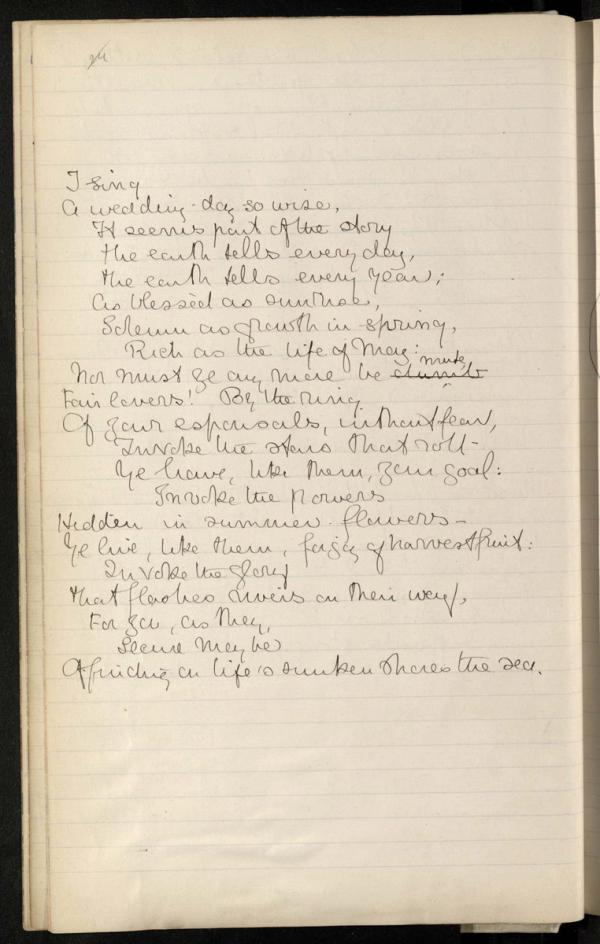 I sing
A wedding-day so wise,
It seems part of the story
the earth tells every day,
the earth tells every year;
As blessèd as sunrise,
Solemn as growth in spring,
Rich as the life of May:
Nor must ye any more be mute,
Fair lovers! By the ring
Of your espousals, without fear,
Invoke the stars that roll—
Ye have, like them, your goal:
Invoke the powers
Hidden in summer-flowers—
Ye live, like them, of harvest fruit:
Invoke the glory
that flashes rivers on their way,
For you, as they,
Secure may be
Of finding on life's sunken shores the sea.